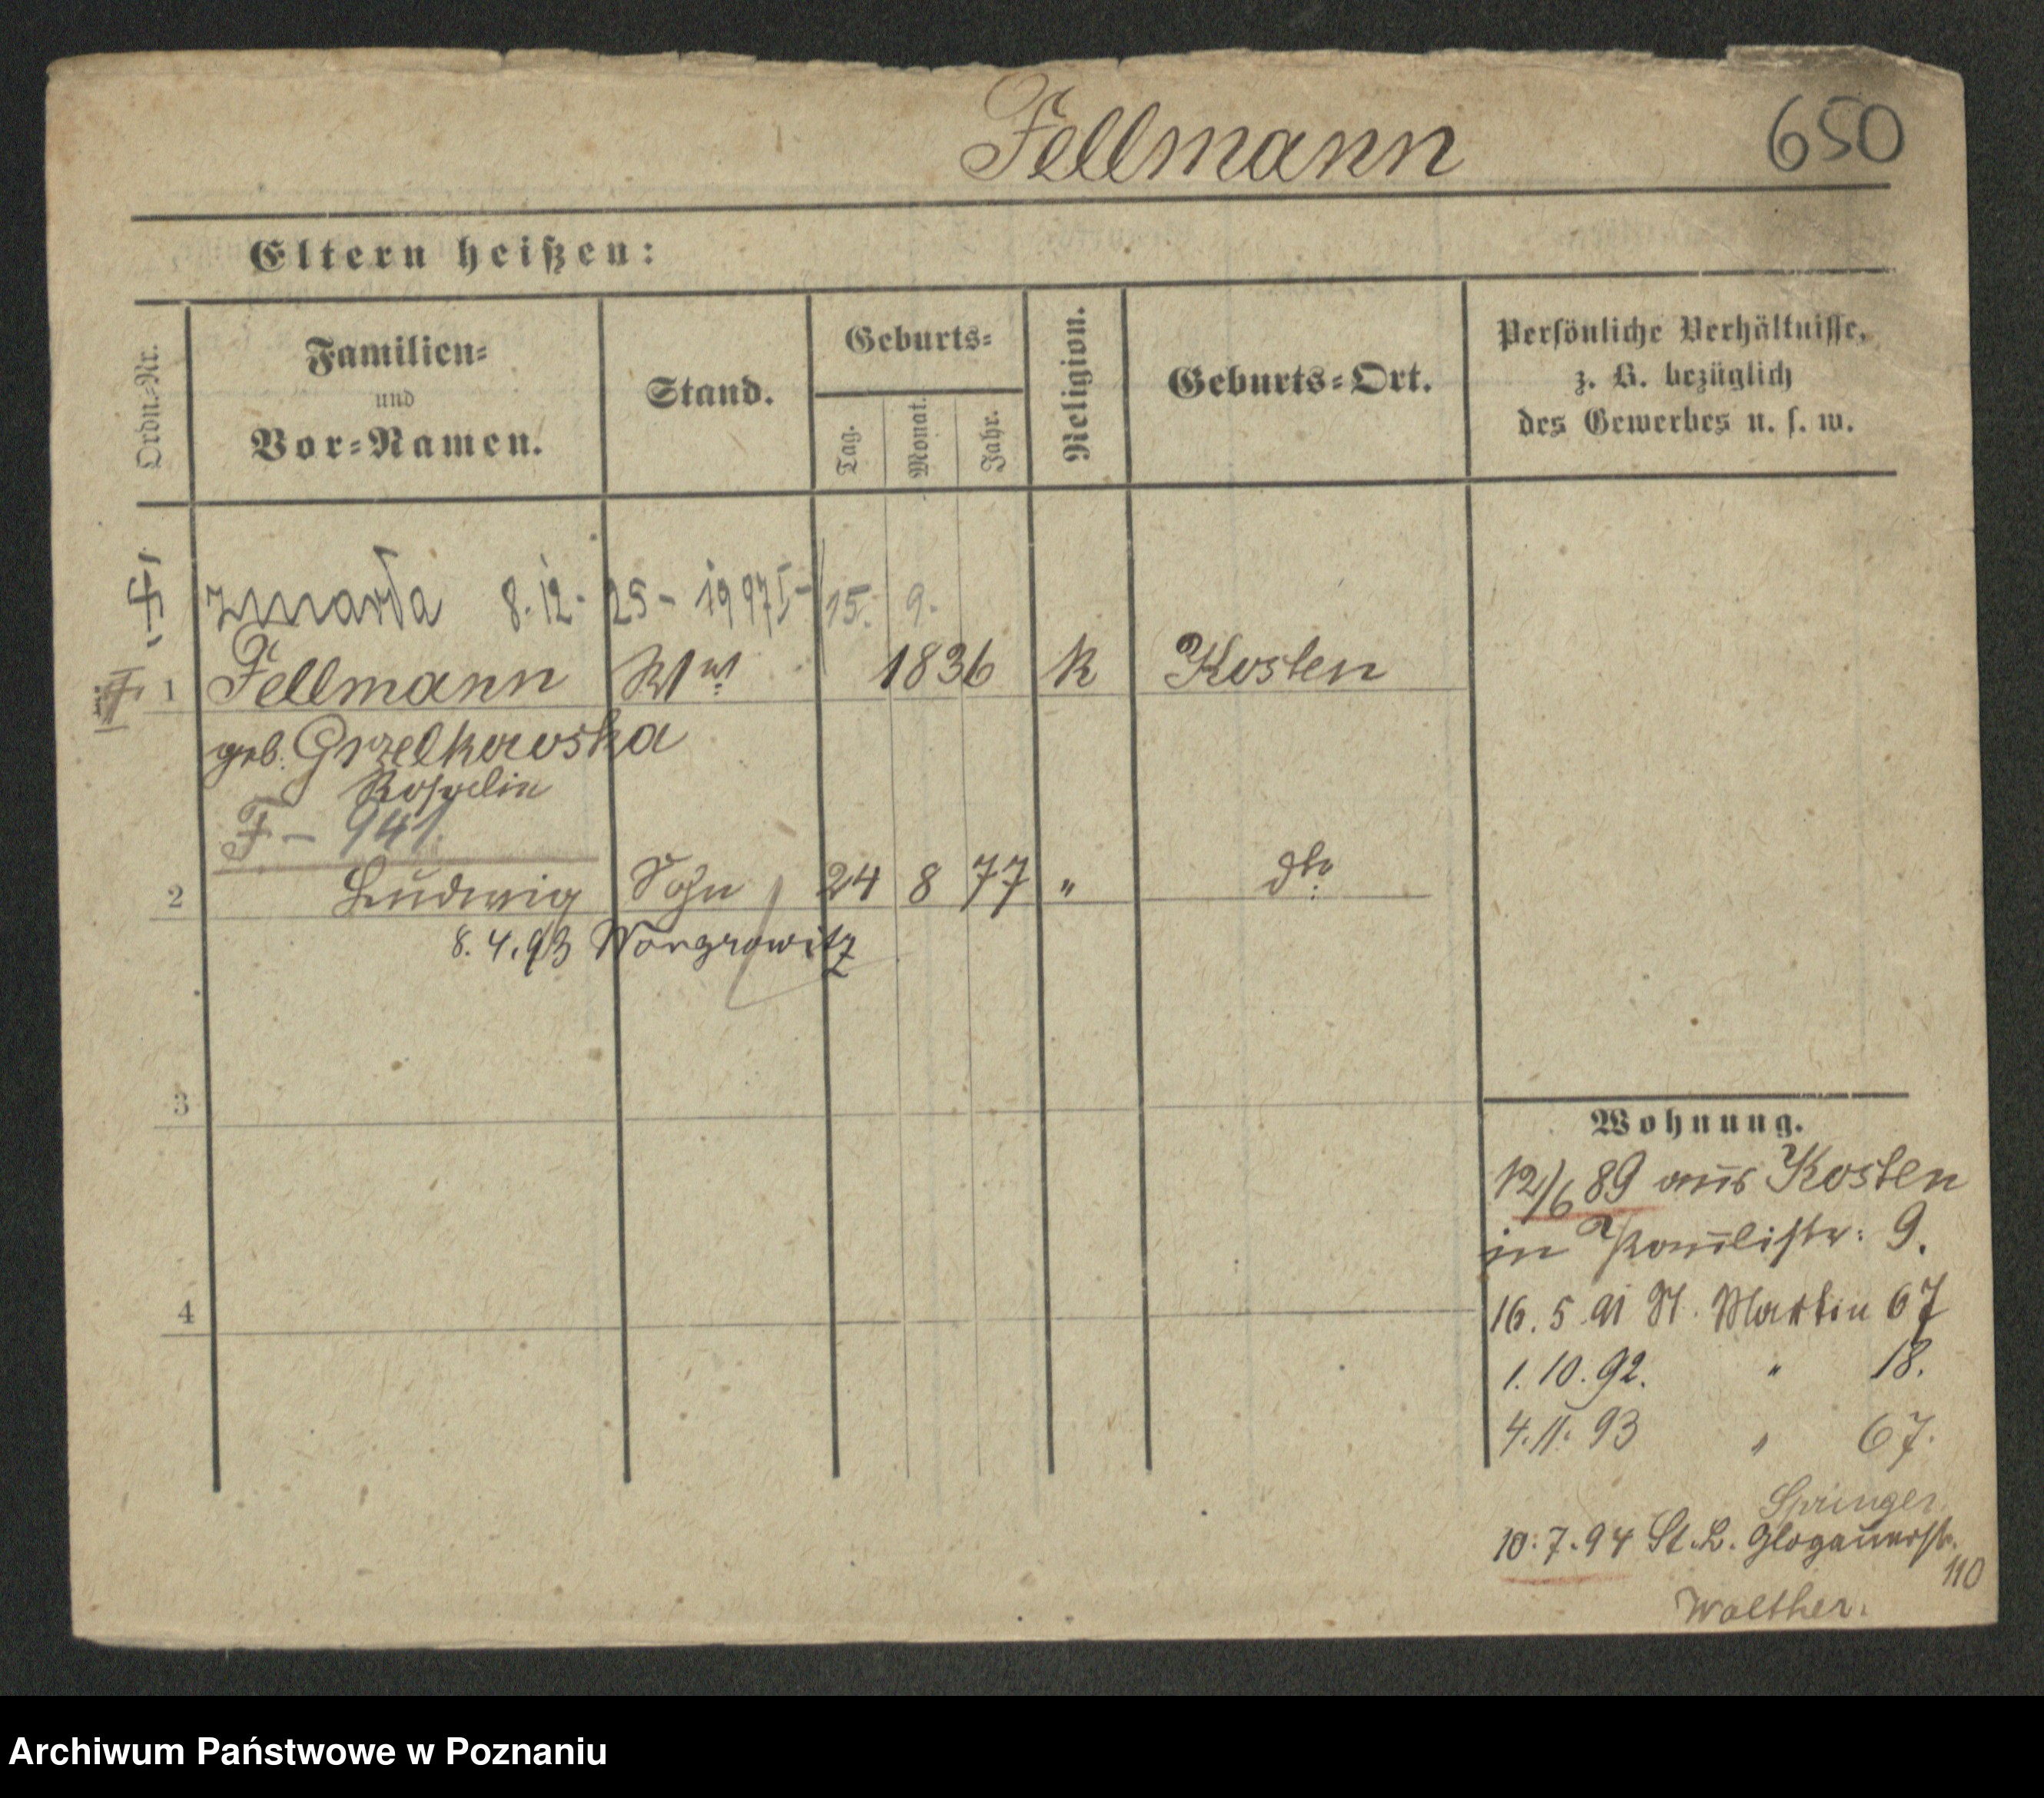 Fellmann 650
Eltern heißen:
Ordn.=Nr.
Familien=
und
Vor=Namen.
Stand.
Geburts=
Tag.
Monat.
Jahr.
Religion.
Geburts=Ort.
Persönliche Verhältnisse,
z. B. bezüglich
des Gewerbes u. s. w.
zmarła 8.12. 25 - 15. 9.
1 Fellmann Ww. 1836 k Kosten
geb. Grzelkowska
F - 941
2 Ludwig Sohn 24 8 77 " dto.
8.4.93 Wongrowitz
3
4
Wohnung.
12/6 89 aus Kosten
in Paulistr. 9.
16. 5. 91 St. Martin 67
1. 10. 92. " 18.
4. 11. 93 " 67.
Springer
10. 7. 94 St. L. Glogauerstr.
110
Walther.
Archiwum Państwowe w Poznaniu